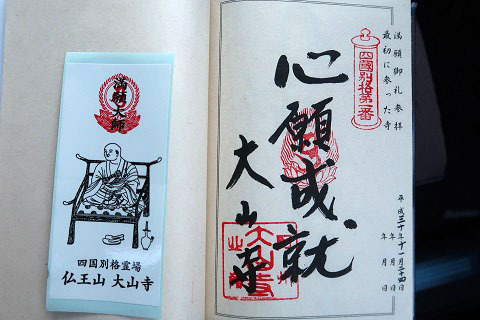 満願御礼参拝
最初に参った寺
四國別格第一番
心願成就
大山寺
平成三十年十一月二十四日
年　月　日
年　月　日
満願大師
四国別格霊場
仏王山 大山寺